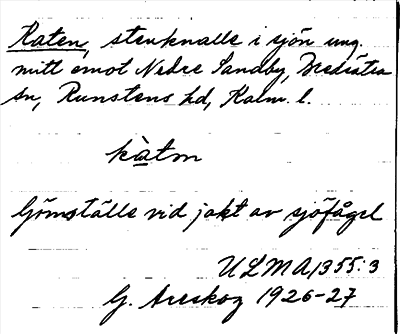 Katen, stenknalle i sjön ung.
mitt emot Nedre Sandby, Bredsätra
sn, Runstens hd, Kalm. l.
kàtn
Gömställe vid jakt av sjöfågel
ULMA 1355:3
G. Areskog 1926-27